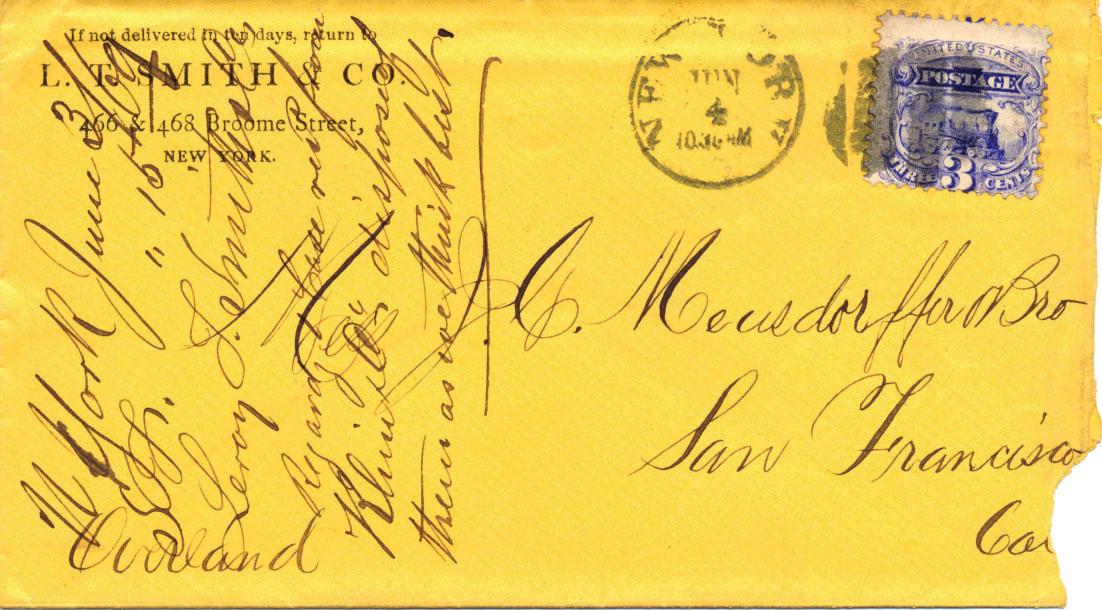 If not delivered in ten days, return to
L. T. SMITH & CO.
466 & 468 Broome Street,
NEW YORK.
NEW YORK
JUN
4
10.30 AM
UNITED STATES
POSTAGE
THREE 3 CENTS
C. Meusdorffer & Bro
San Francisco
Cal
Overland
N York June 3/69
S.F. " 15/
Leroy T. Smith & Co
Regard
disposed
them as we think best.